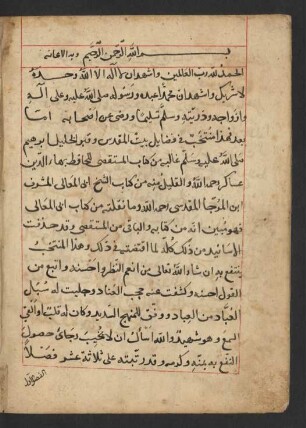 بسم الله الرحمن الرحيم وبه الاعانه
الحمد لله رب العالمين واشهد ان لا اله الا الله وحده
لا شريك له واشهد ان محمدا عبده ورسوله صلى الله عليه وعلى اله
وازواجه وذريته وسلم تسليما ورضى عن اصحابه اما
بعد فهذا منتخب في فضايل بيت المقدس وقبر الخليل ابرهيم
صلى الله عليه وسلم غالبه من كتاب المستقصى للحافظ بهاء الدين
عساكر رحمه الله والقليل منه من كتاب الشيخ ابى المعالى المشرف
ابن المرجا المقدسى رحمه الله وما نقلته من كتاب ابى المعالى
فهو مبين انه من كتابه والباقى من المستقصى وقد حذفت
الاسانيد من ذلك كله لما اقتضى فى ذلك وهذا المنتخب
ينتفع به ان شاء الله تعالى من انعم النظر واحسنه واتبع من
القول احسنه وكشفت عنه حجب العناد وجليت له سبل
العباد من العباد ووفق للمنهج السديد وكان له قلب او القى
السمع وهو شهيد والله اسأل ان لا يخيب رجائ وحصول
النفع به بمنه وكرمه وقد رتبته على ثلاثة عشر فصلا
الفصل الاول